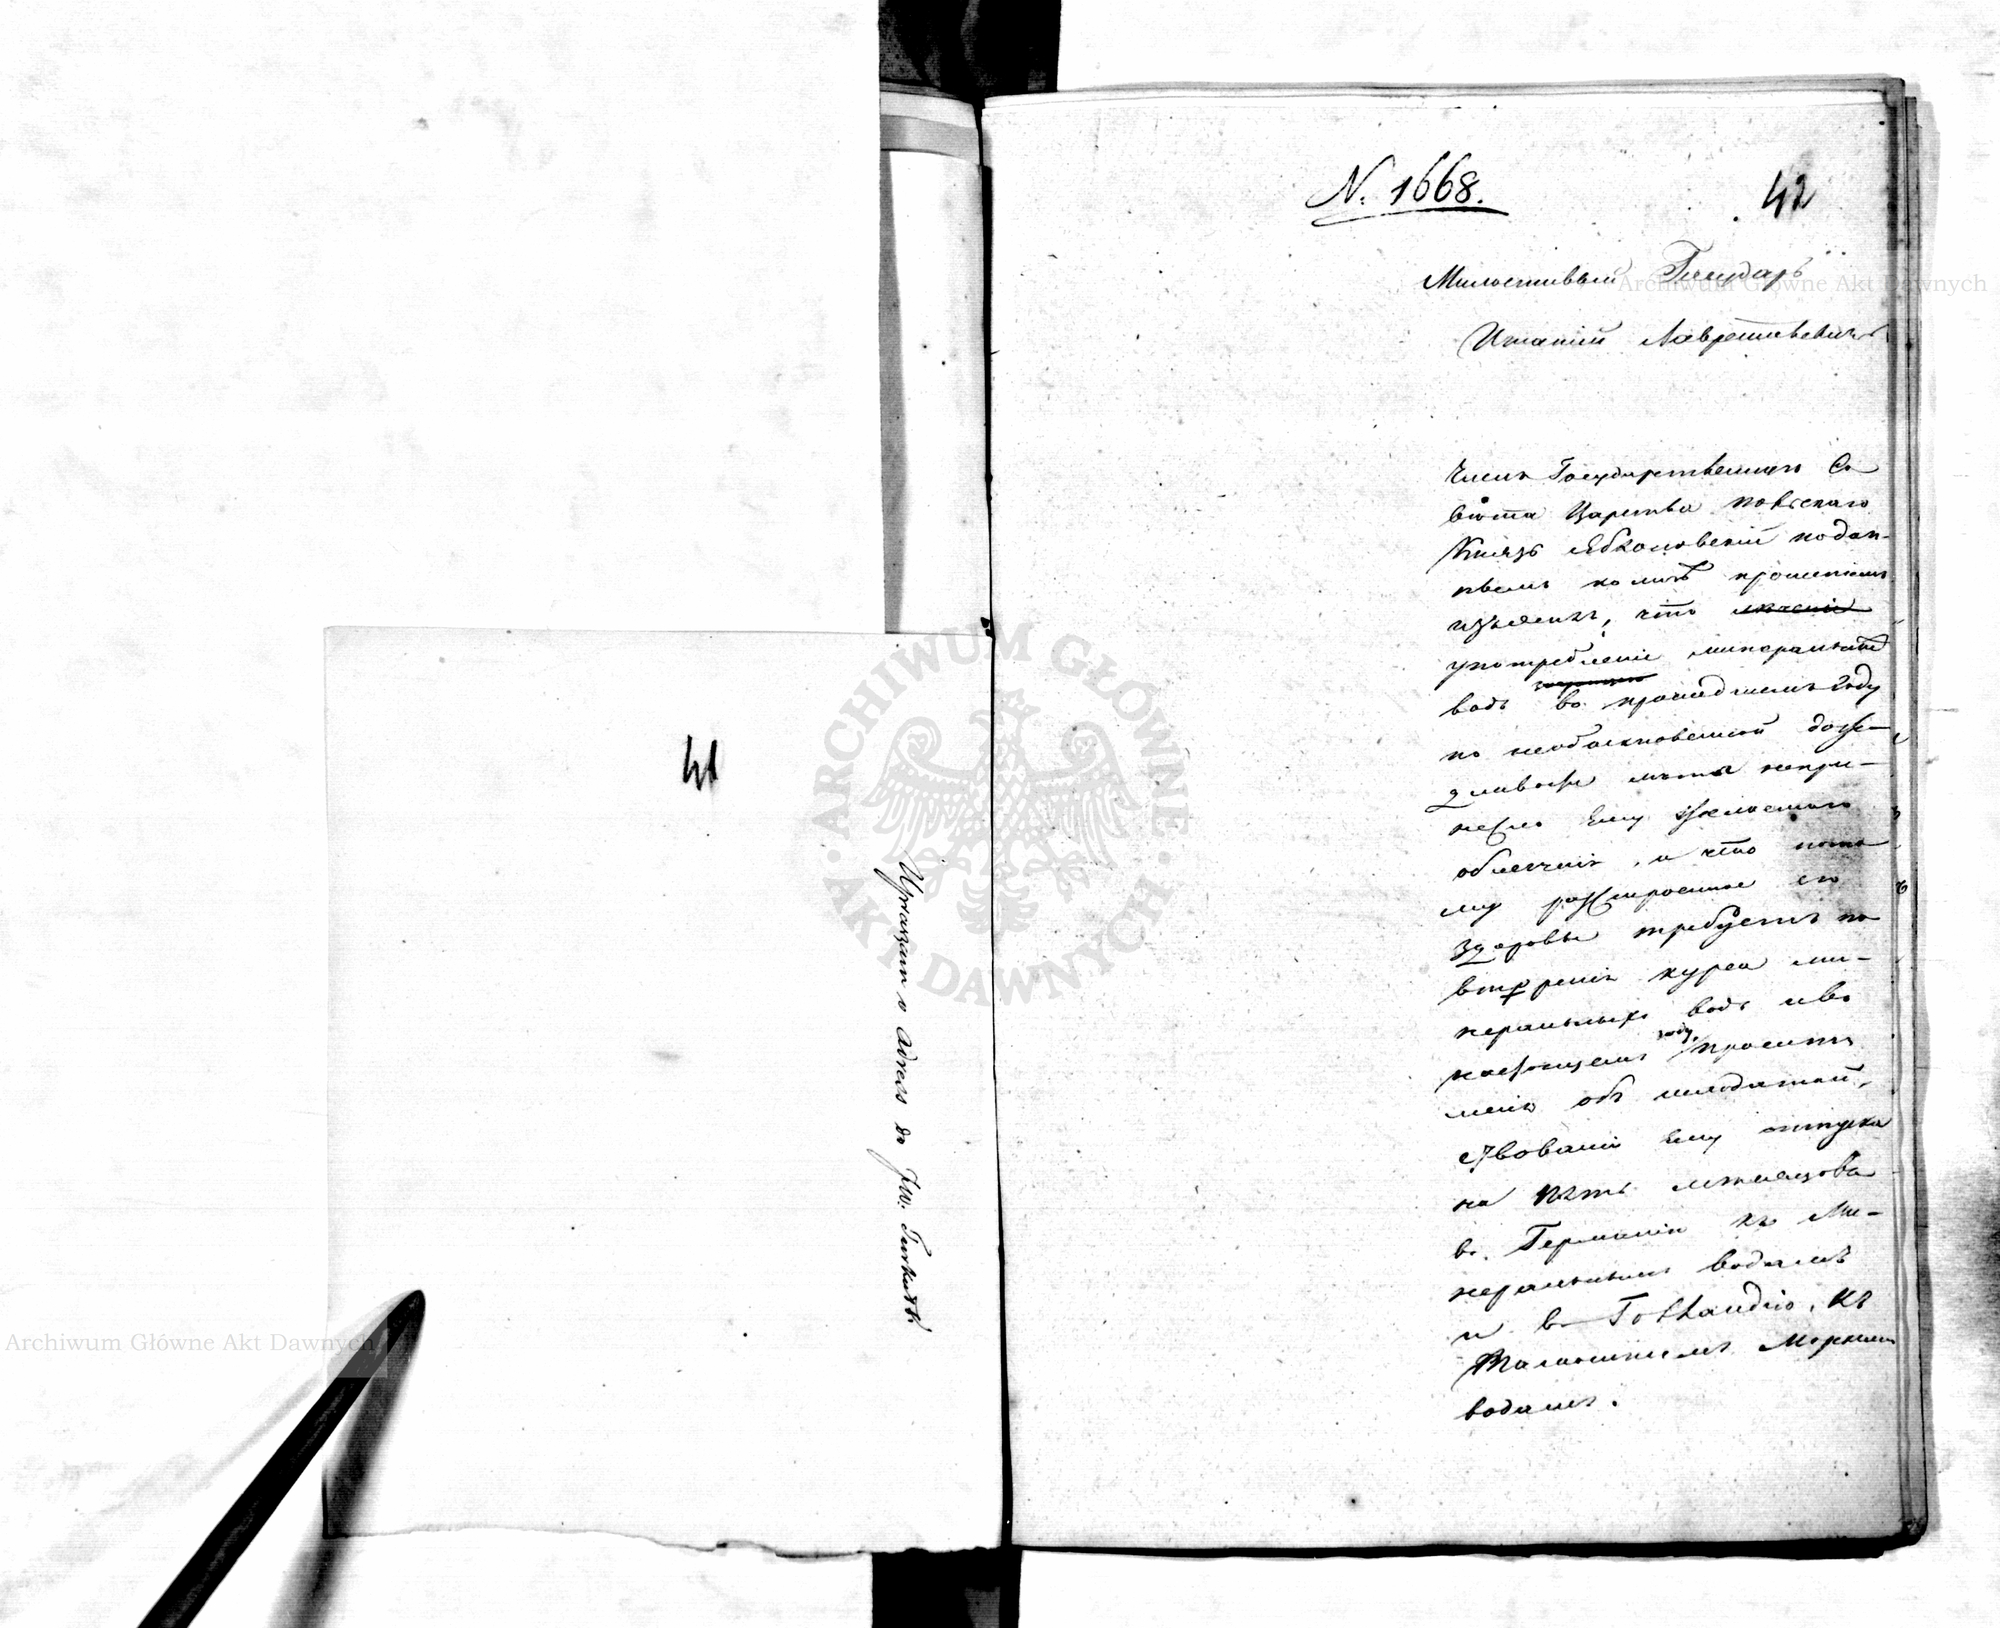 41
Upraszam o adress do JW. Turkułł.
N. 1668.
42
Милостивый Государь
Игнатій Лаврентьевичъ
Членъ Государственнаго Со
вѣта Царства Польскаго
Князь Яблоновскій подан-
нымъ ко мнѣ прошеніемъ
изъяснилъ, что
употребленіе минеральныхъ
водъ въ прошедшемъ году
по необыкновенной дож-
дливости лѣта непри-
несло Ему желаемаго
облегченія, и что пото
му разстроенное его
здоровье требуетъ по
вторенія курса ми-
неральныхъ водъ и въ
настоящемъ году, проситъ
меня объ исходатай-
ствованіи Ему отпуска
на пять мѣсяцовъ
въ Германію къ Ми-
неральнымъ водамъ
и въ Голландію, къ
тамошнимъ Морскимъ
водамъ.
ARCHIWUM GŁÓWNE AKT DAWNYCH
Archiwum Główne Akt Dawnych
Archiwum Główne Akt Dawnych